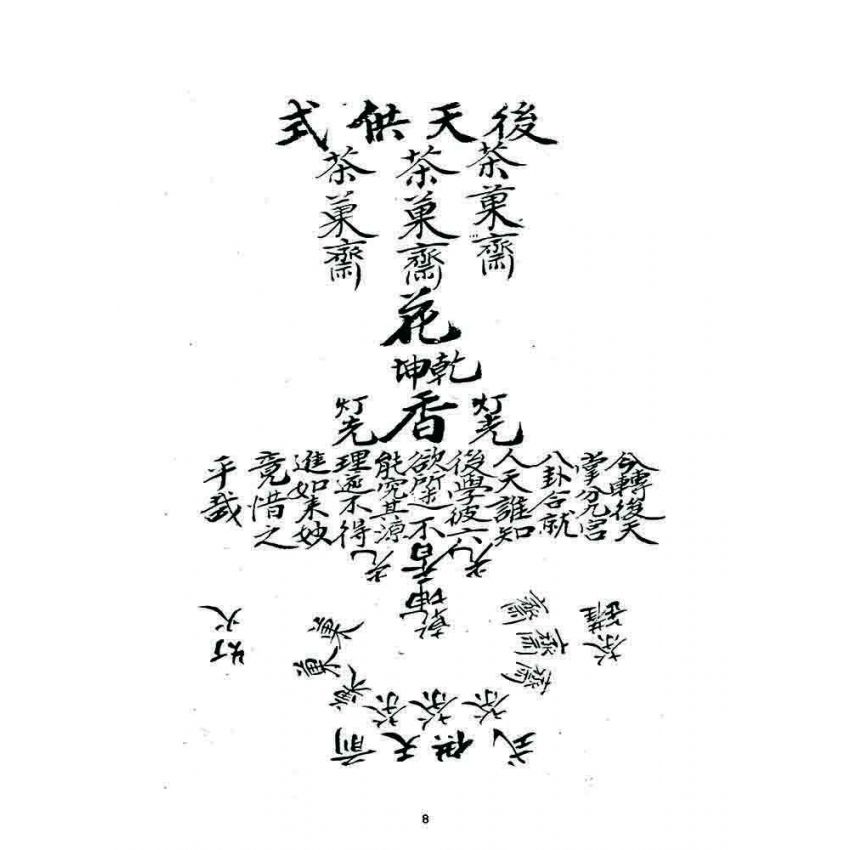 後天供式
茶菓齋
茶菓齋
茶菓齋
花
乾坤
灯光
香
灯光
今轉後天
掌分九宮
八卦合就
人天誰知
後學彼六
欲一不
能究其源
理遮不得
進如来妙
竟惜之
乎哉
光香光
乾坤
齋齋齋
菓菓菓
茶
灯火
茶茶茶
前天供式
8